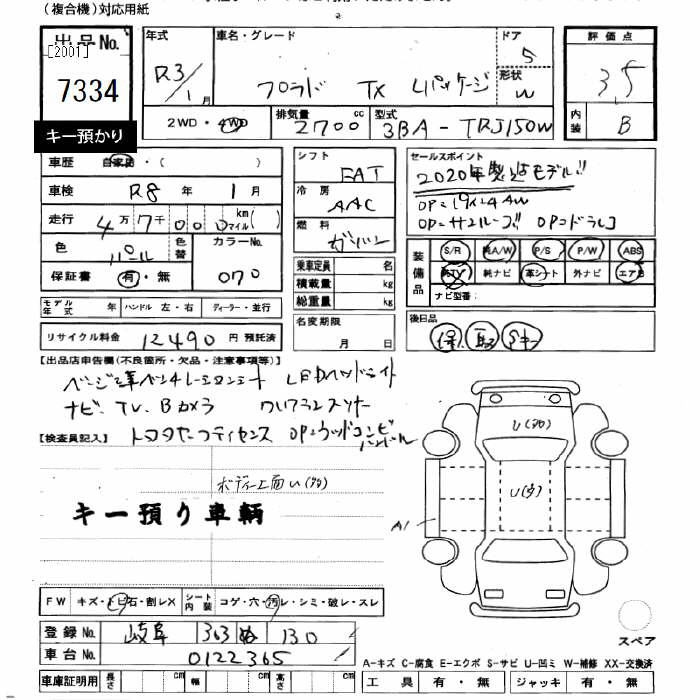 (複合機)対応用紙
出品No.
[2001]
7334
キー預かり
年式
R3/1月
車名・グレード
プラド TX Lパッケージ
ドア
5
形状
W
評価点
3.5
内装
B
2WD・4WD
排気量
2700cc
型式
3BA-TRJ150W
車歴
自家用・( )
車検
R8年1月
走行
4万7千000km マイル( )
色
パール
色替
カラーNo.
070
保証書
有・無
シフト
FAT
冷房
AAC
燃料
ガソリン
乗車定員 名
積載量 kg
総重量 kg
名変期限
月 日
セールスポイント
2020年製造モデル!!
OP=19インチAW
OP=サンルーフ!! OP=ドラレコ
装備品
S/R 純A/W P/S P/W ABS
純TV 純ナビ 革シート 外ナビ エアB
ナビ型番:
後日品
保 取 Sキー
モデル年式 年 ハンドル 左・右 ディーラー・並行
リサイクル料金 12490円 預託済
【出品店申告欄(不良箇所・欠品・注意事項等)】
ベージュ革ベンチレーションシート LEDヘッドライト
ナビ、TV、Bカメラ クリアランスソナー
トヨタセーフティセンス OP=ウッドコンビハンドル
【検査員記入】
ボディー上面U(多)
キー預り車輌
U(多)
U(多)
A1
FW キズ・トビ石・割レX シート内装 コゲ・穴・汚レ・シミ・破レ・スレ
登録No. 岐阜 303 ぬ 130
車台No. 0122365
車庫証明用 長さ cm 幅 cm 高さ cm
スペア
A-キズ C-腐食 E-エクボ S-サビ U-凹ミ W-補修 XX-交換済
工具 有・無 ジャッキ 有・無